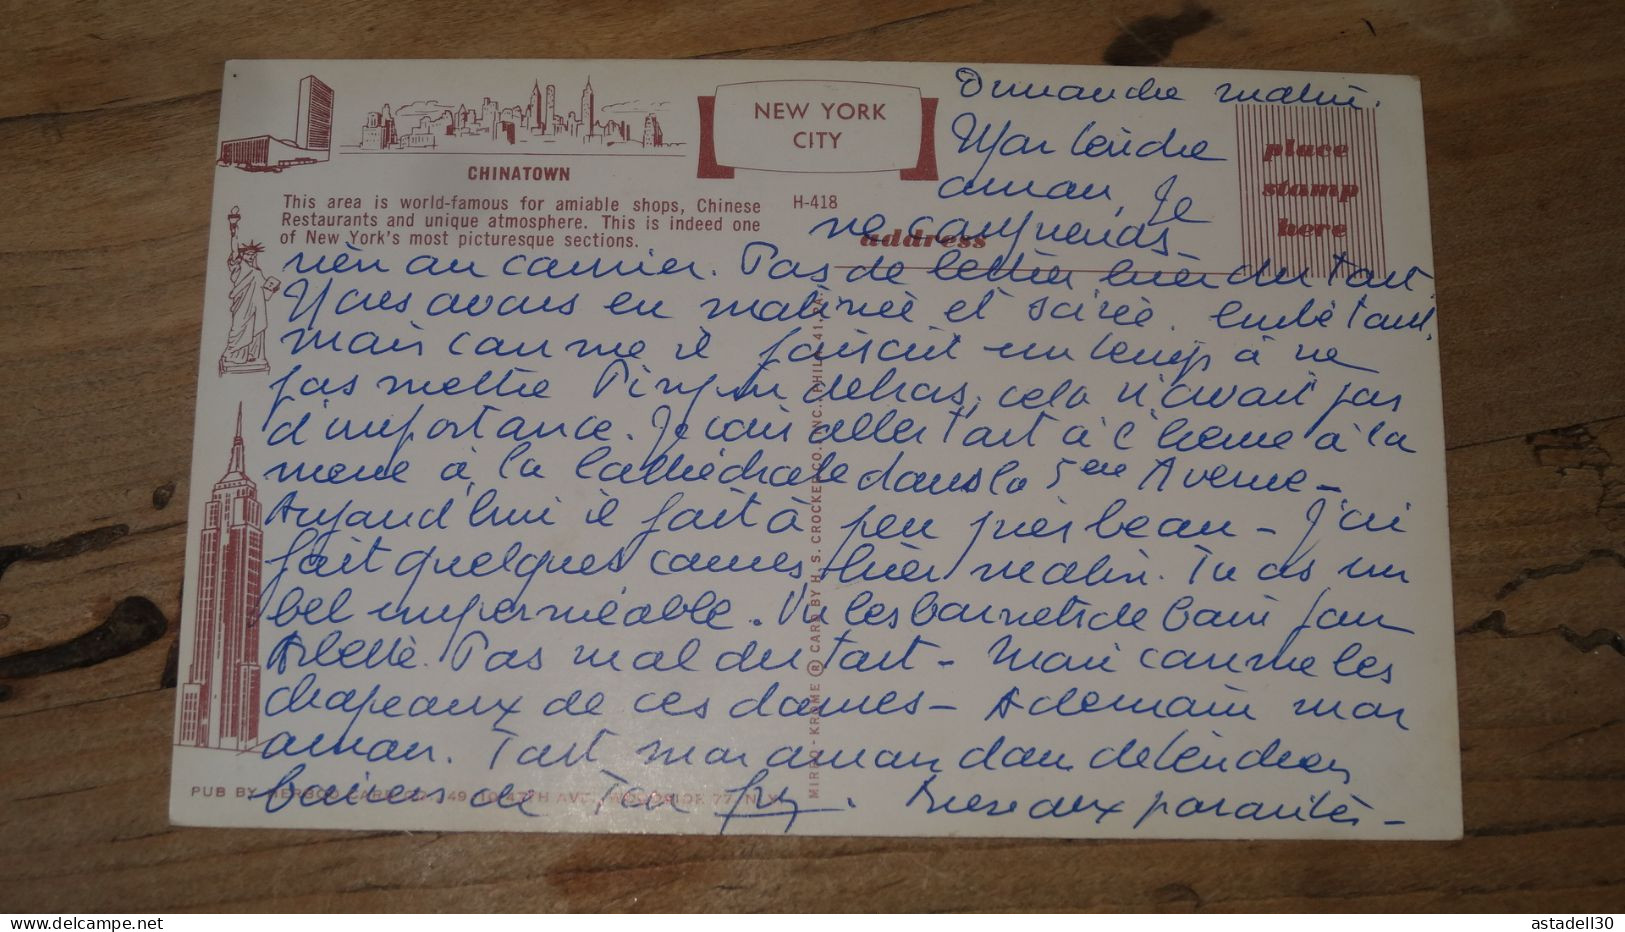 NEW YORK
CITY
CHINATOWN
This area is world-famous for amiable shops, Chinese
Restaurants and unique atmosphere. This is indeed one
of New York's most picturesque sections.
H-418
place
stamp
here
address
Dimanche matin.
Mon tendre
aman, Je
ne comprends
rien au courrier. Pas de lettre hier du tout.
Nous avons eu matinée et soirée. embêtant,
mais comme il faisait un temps à ne
pas mettre dehors, cela n'avait pas
d'importance. Je vais aller tout à l'heure à la
messe à la Cathédrale dans la 5ème Avenue -
Aujourd'hui il fait à peu près beau - J'ai
fait quelques courses hier matin. Tu as un
bel imperméable. Vu les bonnets de bain pour
Pas mal du tout - Mais comme les
chapeaux de ces dames - A demain mon
aman. Tout mon aman dans de tendres
baisers de Ton
MIRRO-KROME ® CARD BY H. S. CROCKER CO. INC., PHILA. 41, PA.
PUB BY